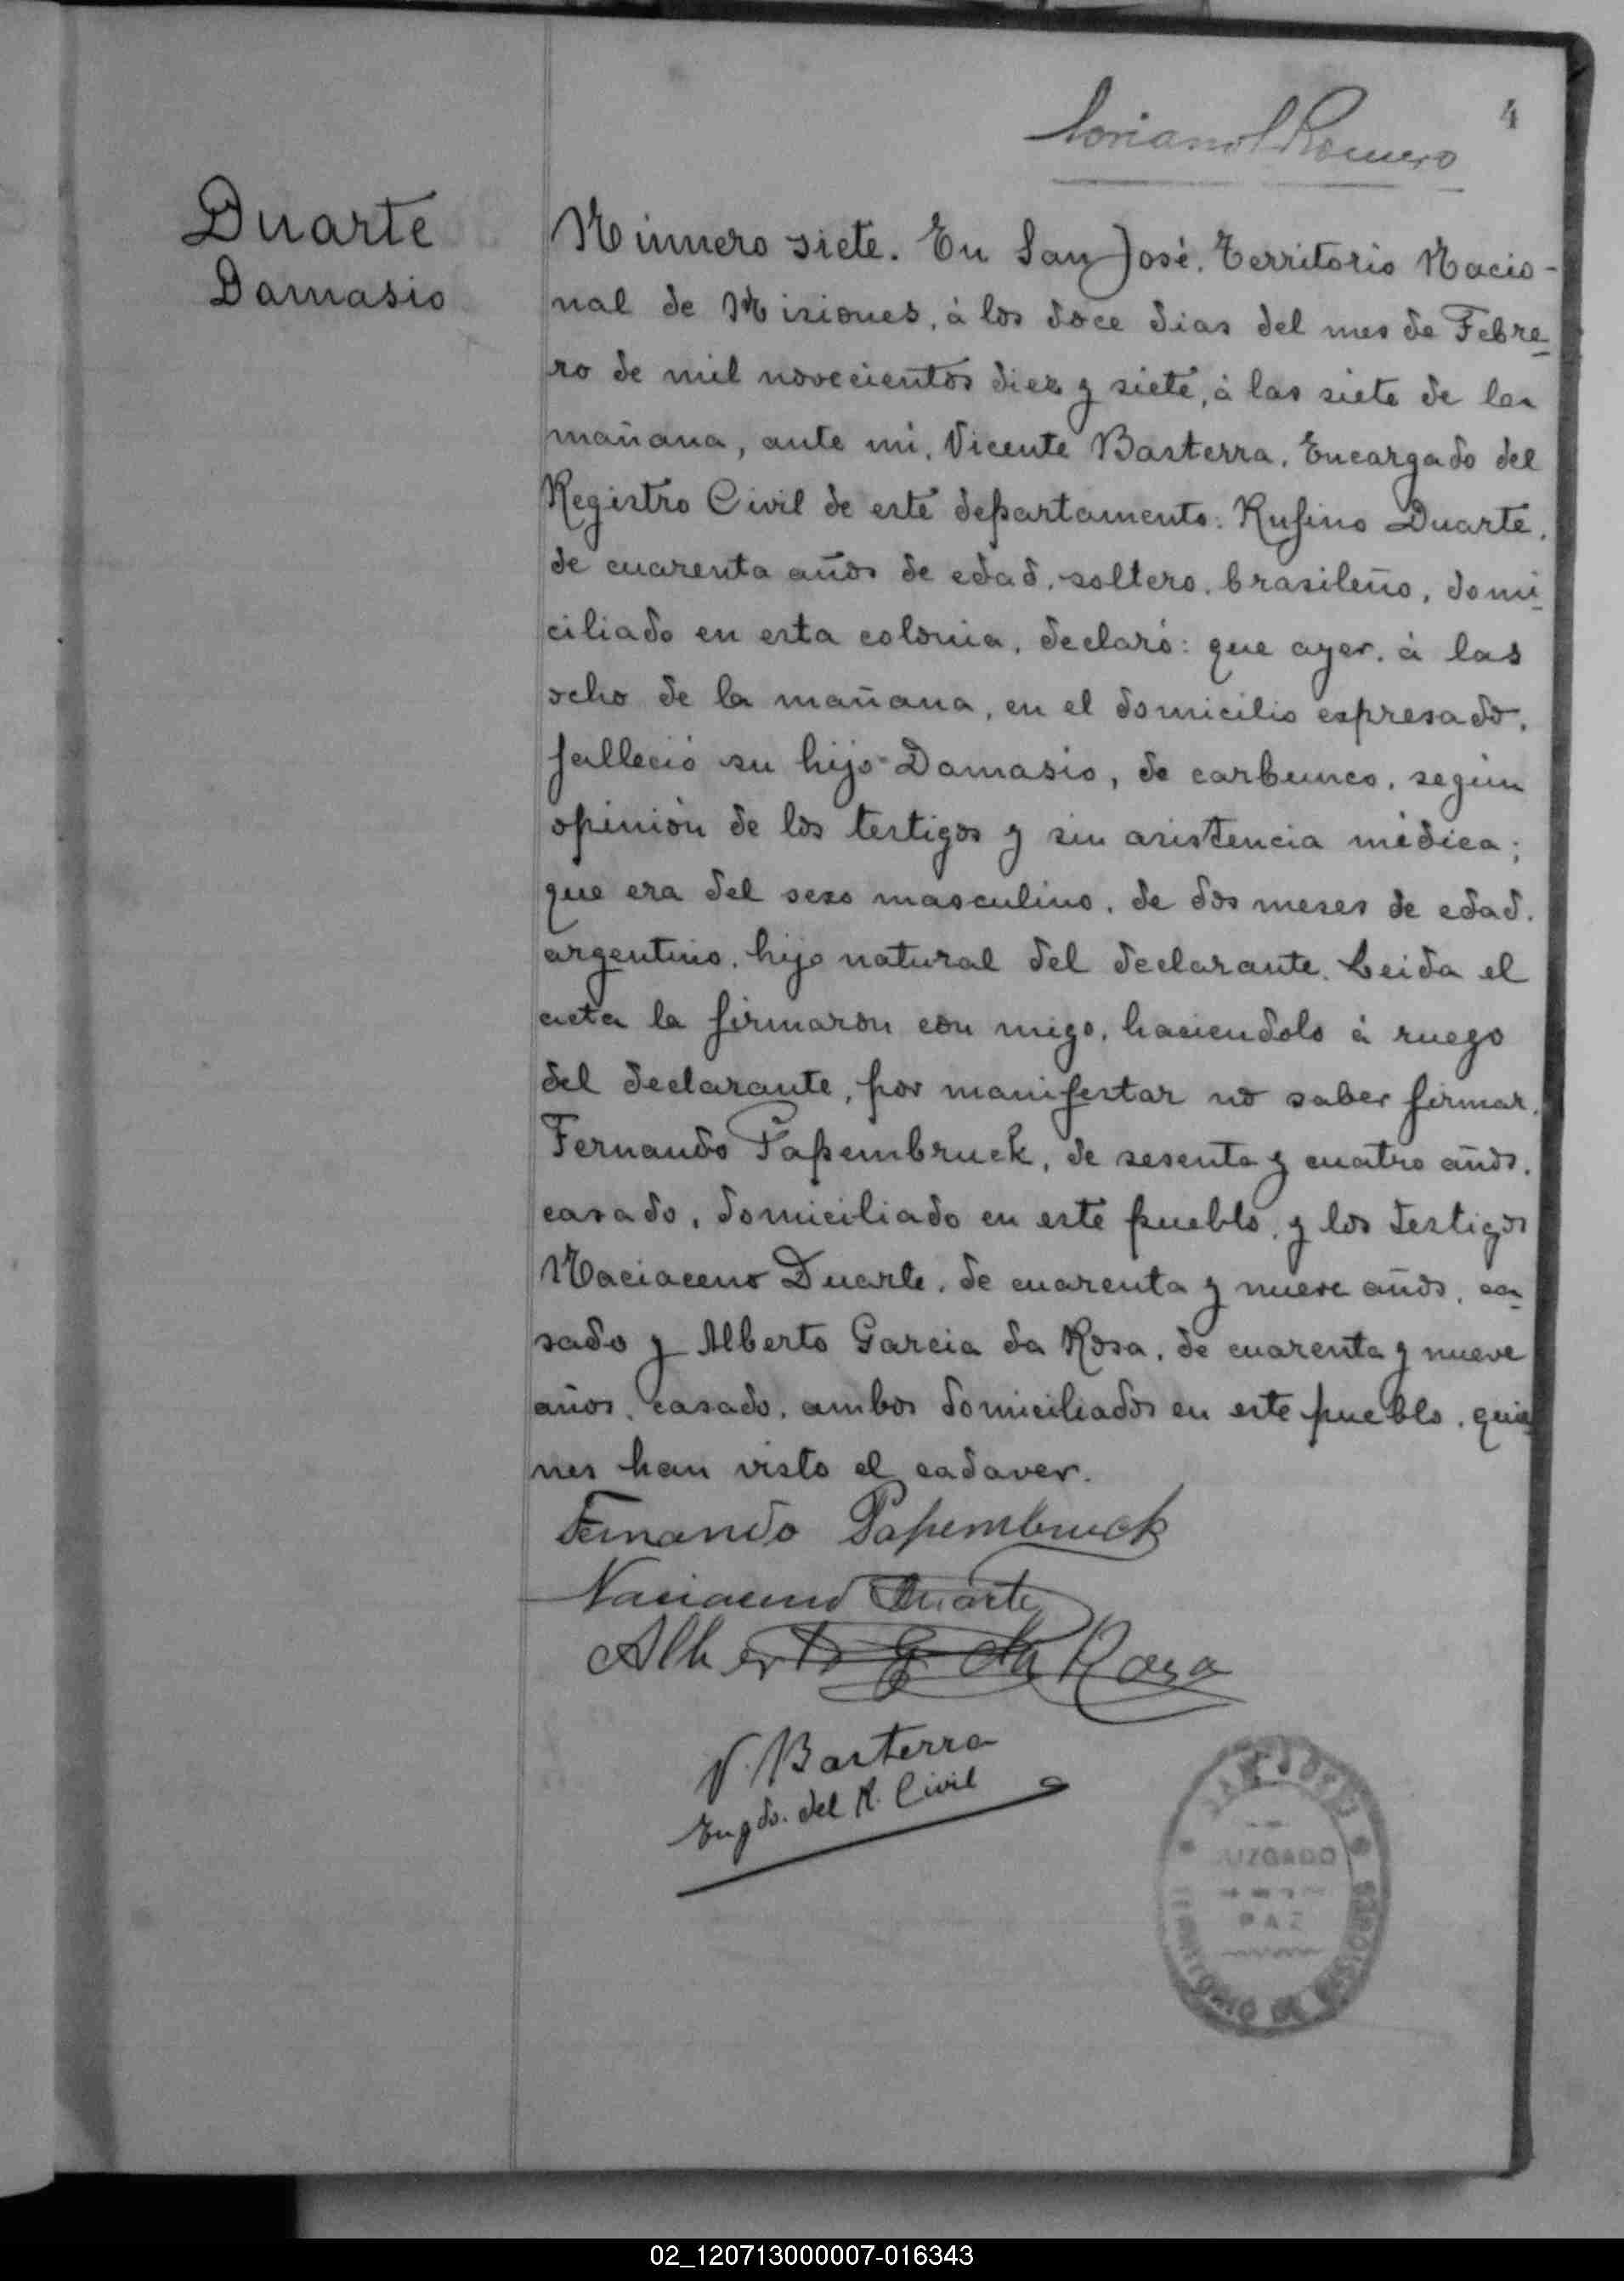 4
Soriano S Romero
Duarte
Damasio
Número siete. En San José, Territorio Nacio-
nal de Misiones, á los doce dias del mes de Febre-
ro de mil novecientos diez y siete, á las siete de la
mañana, ante mi, Vicente Basterra, Encargado del
Registro Civil de este departamento: Rufino Duarte,
de cuarenta años de edad, soltero, brasileño, domi-
ciliado en esta colonia, declaró: que ayer, á las
ocho de la mañana, en el domicilio espresado,
falleció su hijo Damasio, de carbunco, según
opinión de los testigos y sin asistencia médica;
que era del sexo masculino, de dos meses de edad,
argentino, hijo natural del declarante. Leida el
acta la firmaron con migo, haciendolo á ruego
del declarante, por manifestar no saber firmar,
Fernando Papembruck, de sesenta y cuatro años,
casado, domiciliado en este pueblo, y los testigos
Naciaceno Duarte, de cuarenta y nueve años, ca-
sado y Alberto Garcia da Rosa, de cuarenta y nueve
años, casado, ambos domiciliados en este pueblo, quie-
nes han visto el cadaver.
Fernando Papembruck
Naciaceno Duarte
Alberto G da Rosa
V. Basterra
Engdo. del R. Civil
SAN JOSÉ
JUZGADO
PAZ
TERRITORIO DE MISIONES
02_120713000007-016343